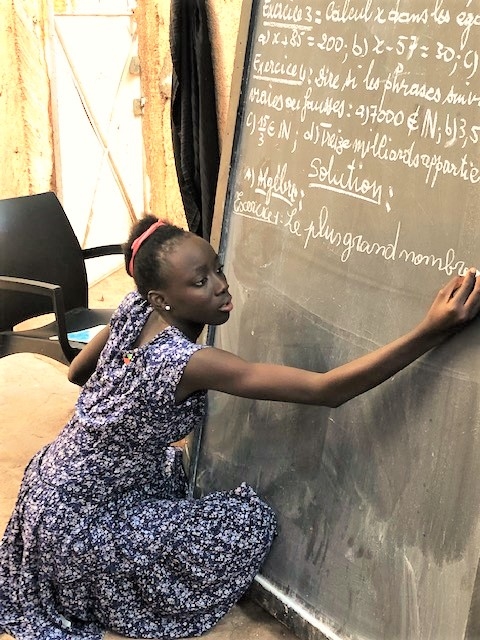 Exercice 3 = Calcul x dans les ég
a) x + 85 = 200; b) x - 57 = 30; c)
Exercice 4: dire si les phrases suiv
vraies ou fausses: a) 7000 ∉ IN; b) 3,5
c) 15/3 ∈ IN; d) Treize milliards appartie
A) Algèbre: Solution:
Exercice 1: Le plus grand nombre